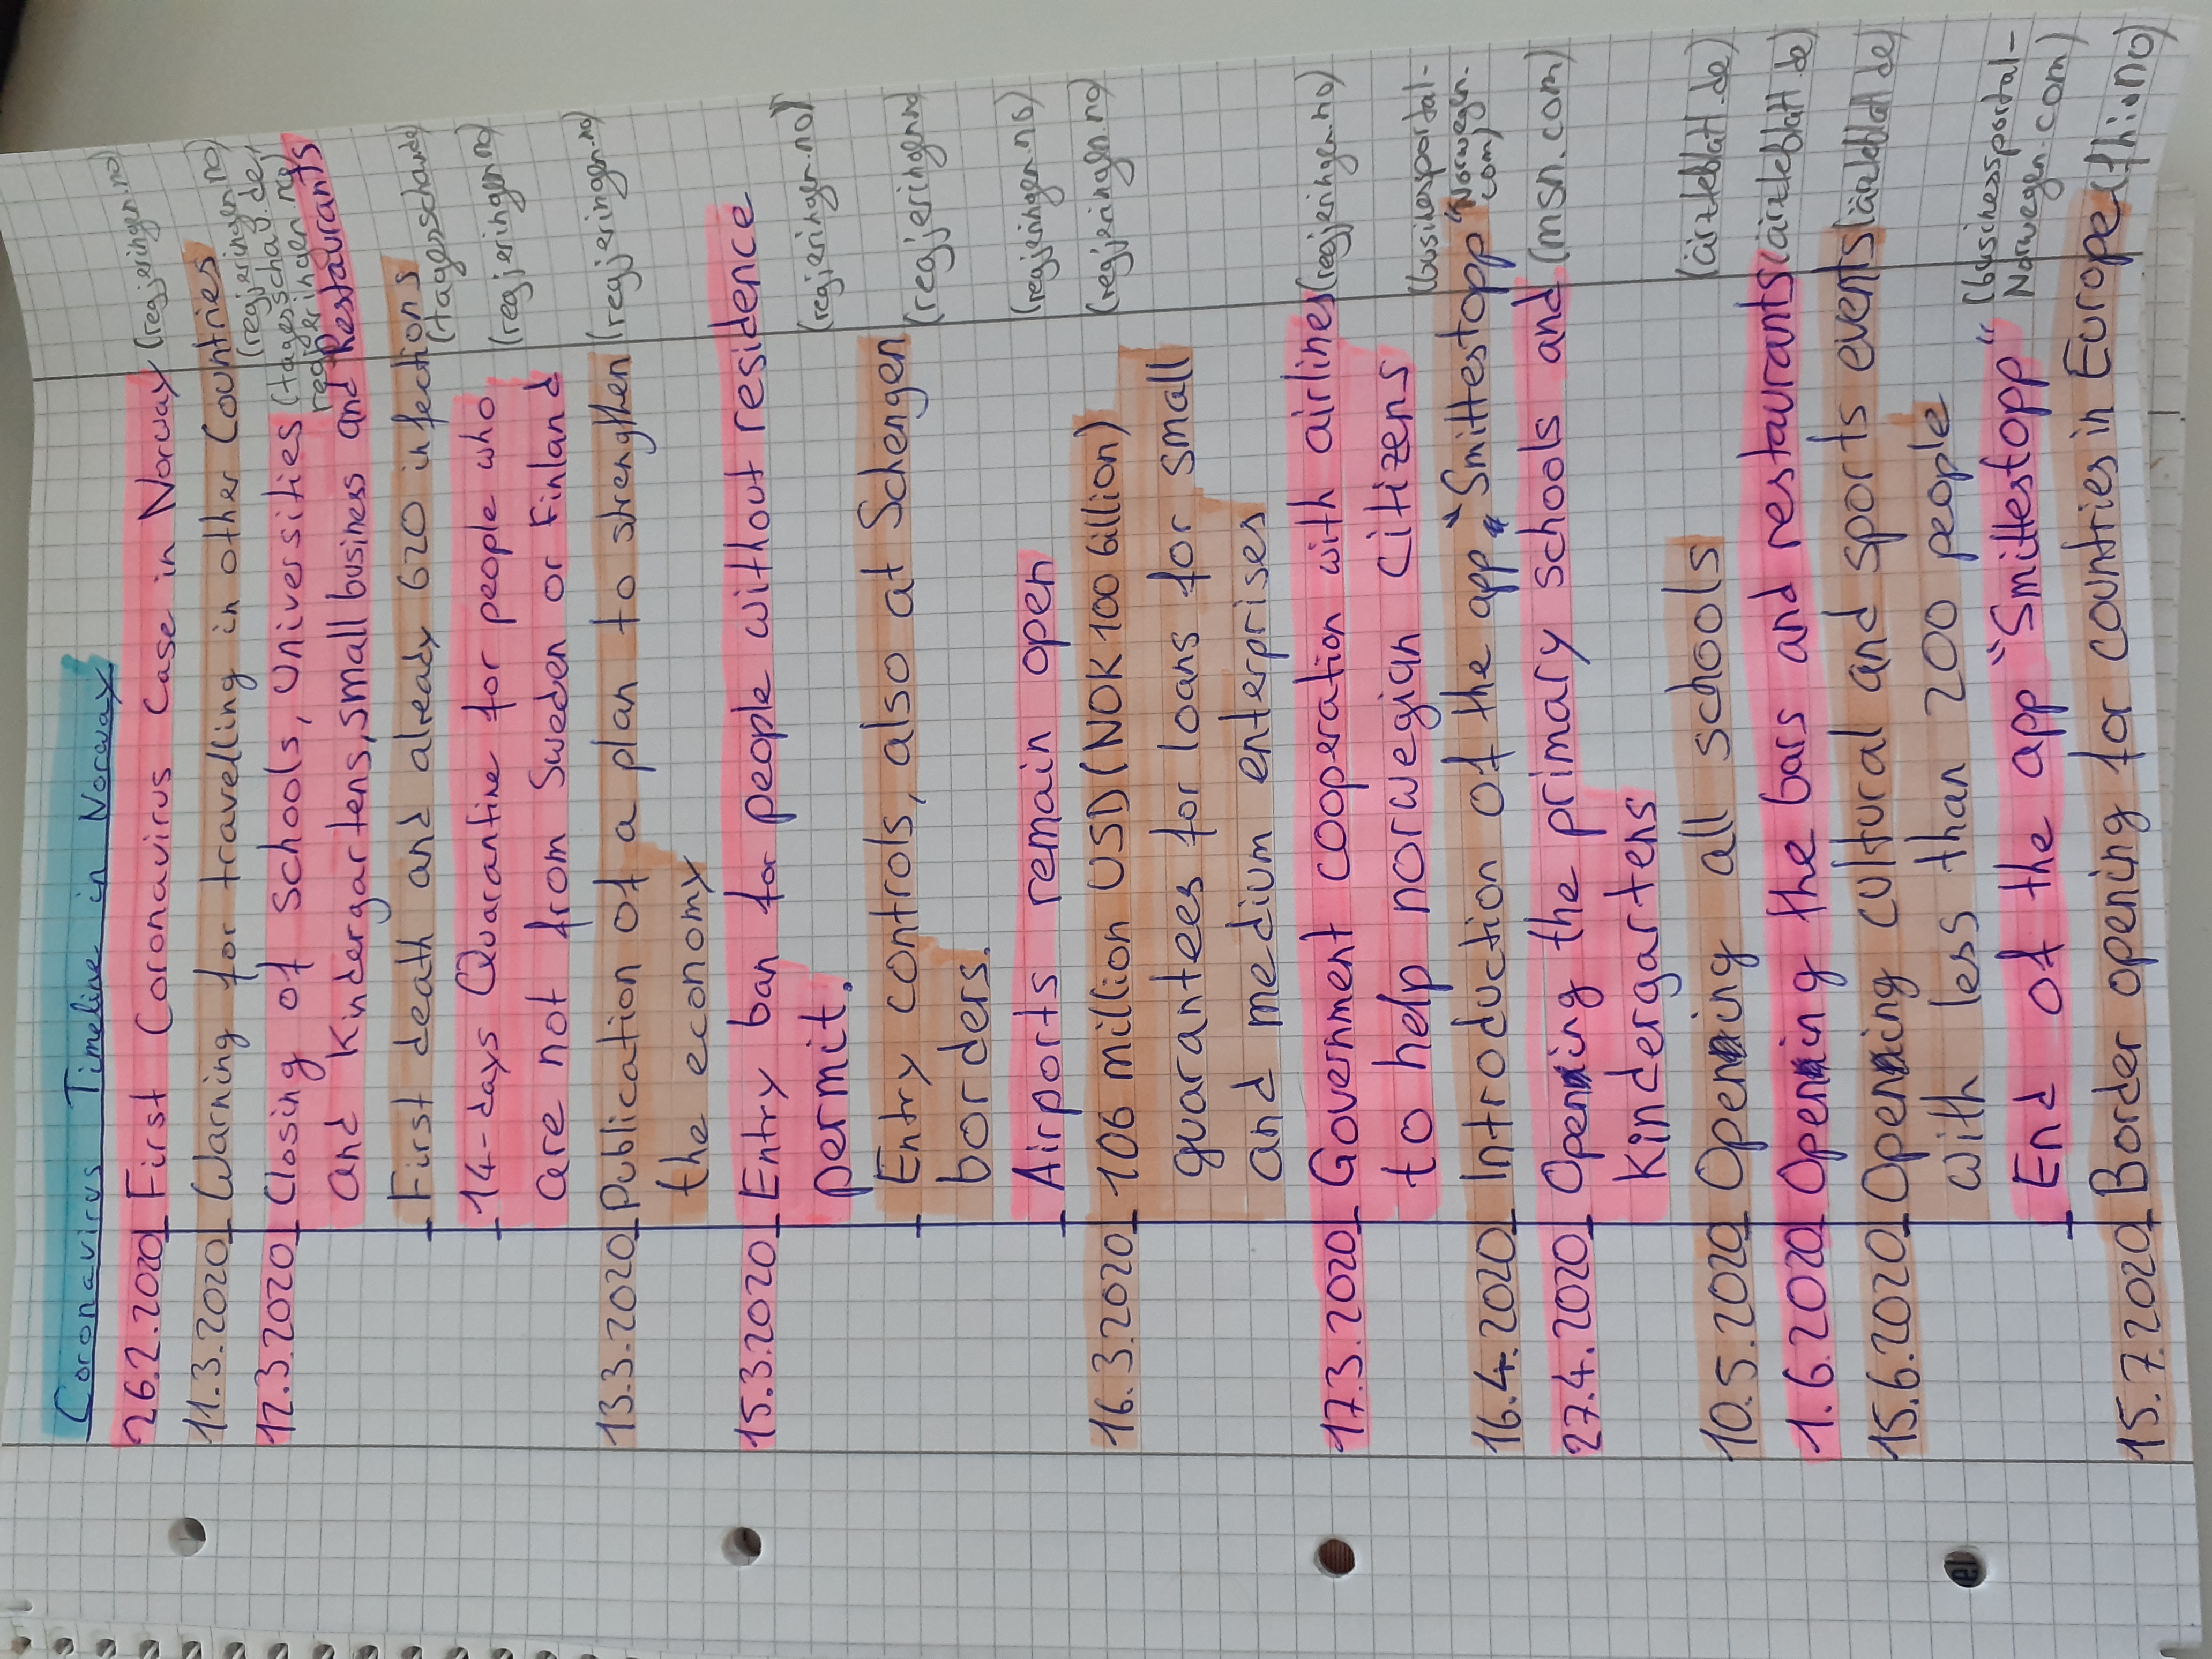 Coronavirus Timeline in Norway
26.2.2020 First Coronavirus Case in Norway (regjeringen.no)
11.3.2020 Warning for travelling in other Countries (regjeringen.no)
12.3.2020 Closing of Schools, Universities (tagesschau.de, regjeringen.no)
and Kindergartens, small business and Restaurants
First death and already 620 infections (tagesschau.de)
14-days Quarantine for people who (regjeringen.no)
are not from Sweden or Finland
13.3.2020 Publication of a plan to strengthen (regjeringen.no)
the economy
15.3.2020 Entry ban for people without residence
permit. (regjeringen.no)
Entry controls, also at Schengen (regjeringen.no)
borders.
Airports remain open (regjeringen.no)
16.3.2020 106 million USD (NOK 100 billion) (regjeringen.no)
guarantees for loans for small
and medium enterprises
17.3.2020 Government cooperation with airlines (regjeringen.no)
to help norwegian citizens
16.4.2020 Introduction of the app "Smittestopp" (businessportal-
Norwegen.
com)
27.4.2020 Opening the primary schools and (msn.com)
Kindergartens
10.5.2020 Opening all schools (ärzteblatt.de)
1.6.2020 Opening the bars and restaurants (ärzteblatt.de)
15.6.2020 Opening cultural and sports events (ärzteblatt.de)
with less than 200 people
End of the app "Smittestopp" (businessportal-
Norwegen.com)
15.7.2020 Border opening for countries in Europe (fhi.no)